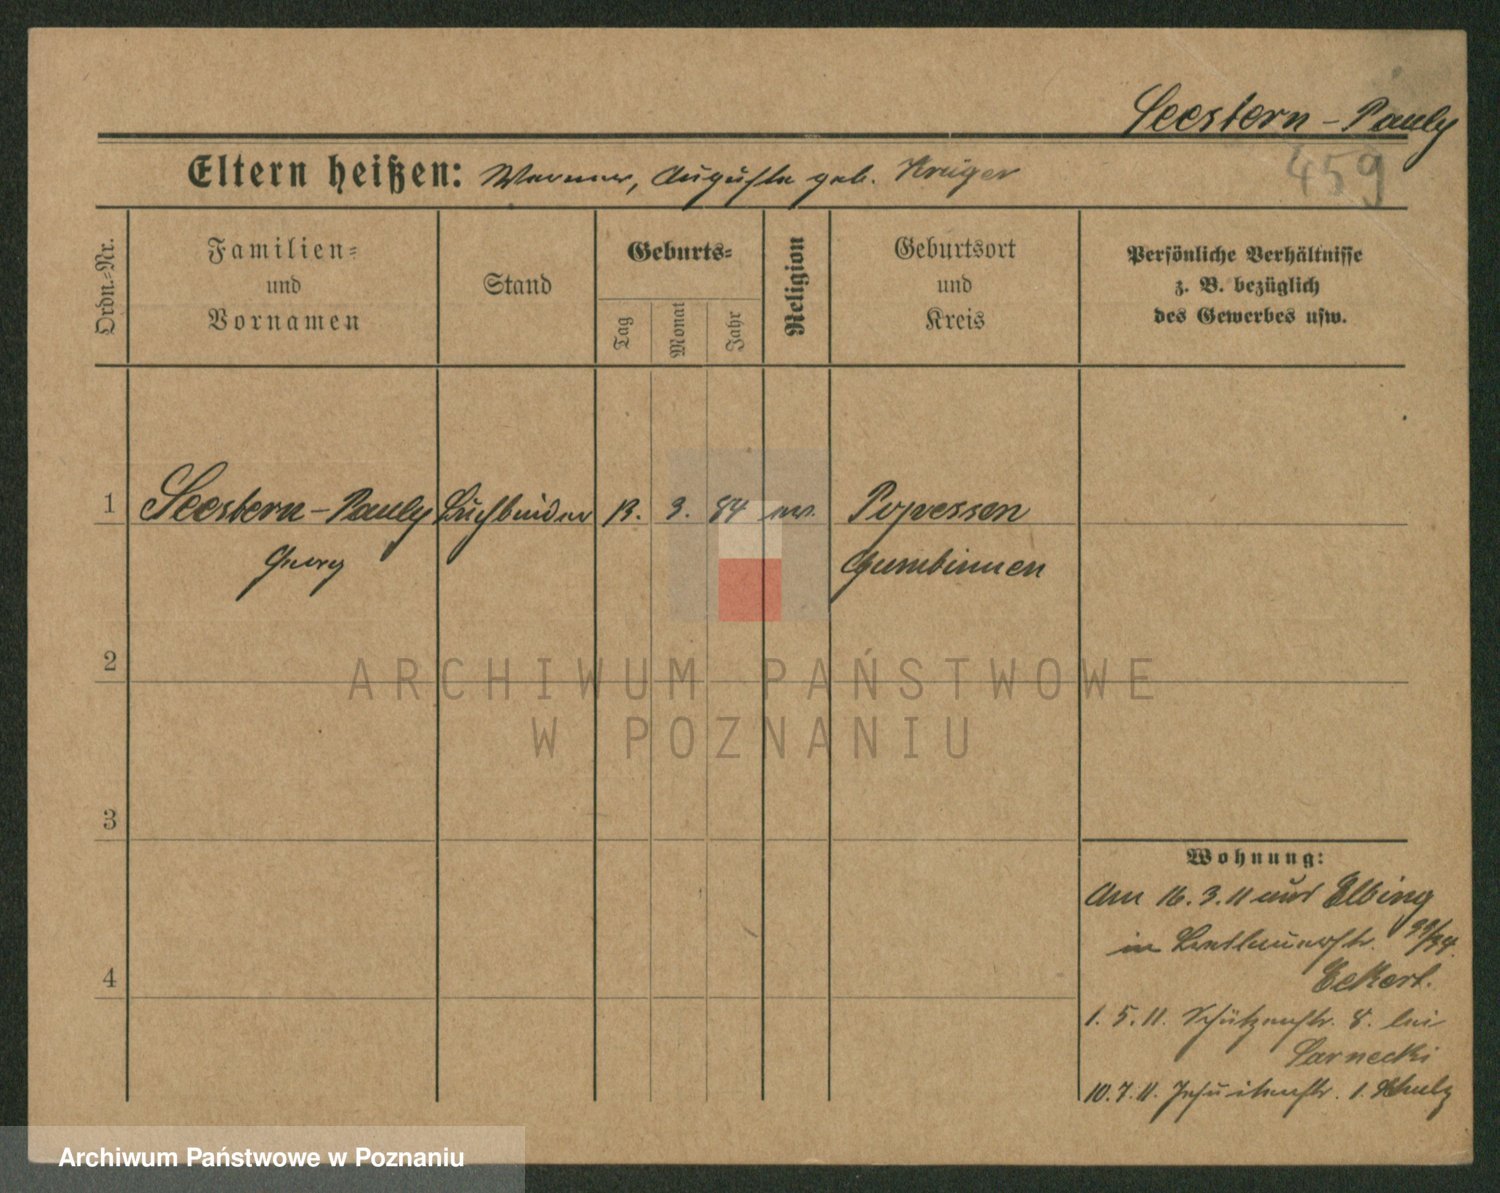 Seestern-Pauly
459
Eltern heißen: Werner, Auguste geb. Krüger
Ordn.-Nr.
Familien- und Vornamen
Stand
Geburts-
Tag
Monat
Jahr
Religion
Geburtsort und Kreis
Persönliche Verhältnisse
z. B. bezüglich
des Gewerbes usw.
1 Seestern-Pauly Buchbinder 13. 3. 84 ev.
Georg Gumbinnen
2
ARCHIWUM PAŃSTWOWE
W POZNANIU
3
4
Wohnung:
Am 16.3.11 aus Elbing
in 33/34.
Eckert.
1.5.11. Schützenstr. 8. bei
Sarnecki
10.7.11. Jesuitenstr. 1. Schulz
Archiwum Państwowe w Poznaniu